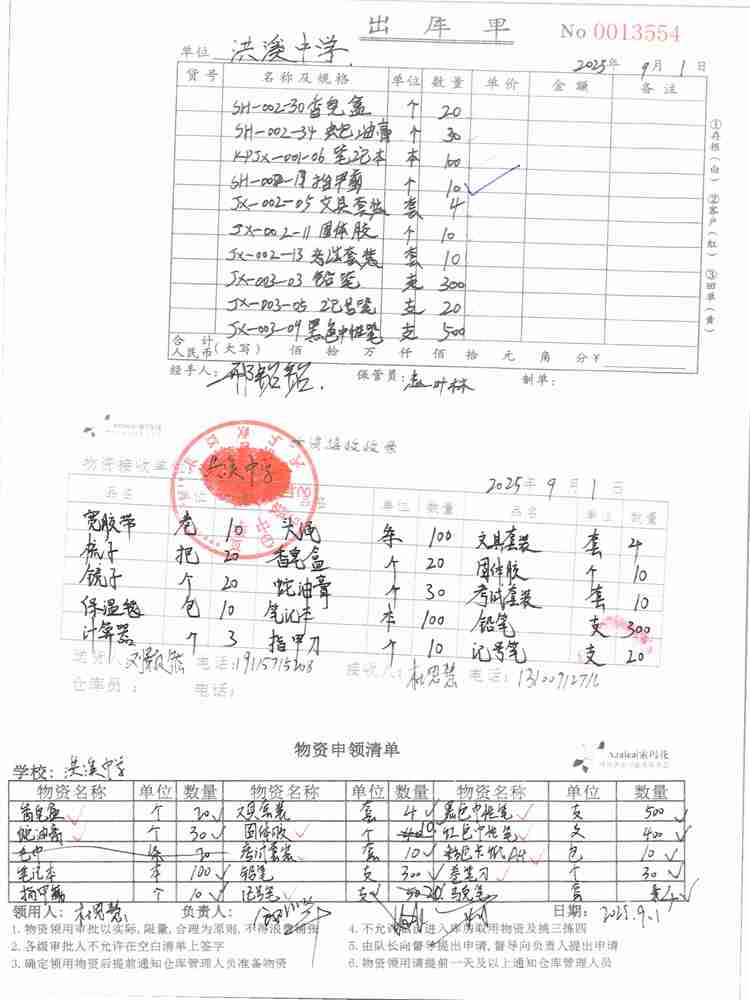 出库单 No 0013554
单位 洪溪中学 2025年9月1日
货号 名称及规格 单位 数量 单价 金额 备注
SH-002-30 香皂盒 个 20
SH-002-34 蛇油膏 个 30
KPJX-001-06 笔记本 本 100
指甲剪 个 10
JX-002-05 文具套装 套 4
JX-002-11 固体胶 个 10
JX-002-13 考试套装 套 10
JX-003-03 铅笔 支 300
JX-003-05 记号笔 支 20
JX-003-09 黑色中性笔 支 500
合计
人民币(大写) 佰 拾 万 仟 佰 拾 元 角 分 ¥
经手人: 保管员: 制单:
①存根(白) ②客户(红) ③回单(黄)
物资接收单
洪溪中学 2025年9月1日
品名 单位 单位 数量 品名 单位 数量
宽胶带 卷 10 头绳 条 100 文具套装 套 4
梳子 把 20 香皂盒 个 20 固体胶 个 10
镜子 个 20 蛇油膏 个 30 考试套装 套 10
保温袋 包 10 笔记本 本 100 铅笔 支 300
计算器 个 3 指甲刀 个 10 记号笔 支 20
送货人 电话: 接收人: 杜思慧 电话:
仓库员: 电话:
物资申领清单
Azalea|索玛花
学校: 洪溪中学
物资名称 单位 数量 物资名称 单位 数量 物资名称 单位 数量
香皂盒 个 20 文具套装 套 4 黑色中性笔 支 500
蛇油膏 个 30 固体胶 个 10 红色中性笔 支 400
毛巾 条 20 考试套装 套 10 彩色卡纸A4 包 10
笔记本 本 100 铅笔 支 300 卷笔刀 个 30
指甲剪 个 10 记号笔 支 20 马克笔 套
领用人: 杜思慧 负责人: 日期: 2025.9.1
1.物资领用审批以实际,限量,合理为原则,不得浪费
2.各级审批人不允许在空白清单上签字
3.确定领用物资后提前通知仓库管理人员准备物资
4.不允许 进入库房取用物资及挑三拣四
5.由队长向督导提出申请,督导向负责人提出申请
6.物资领用请提前一天及以上通知仓库管理人员